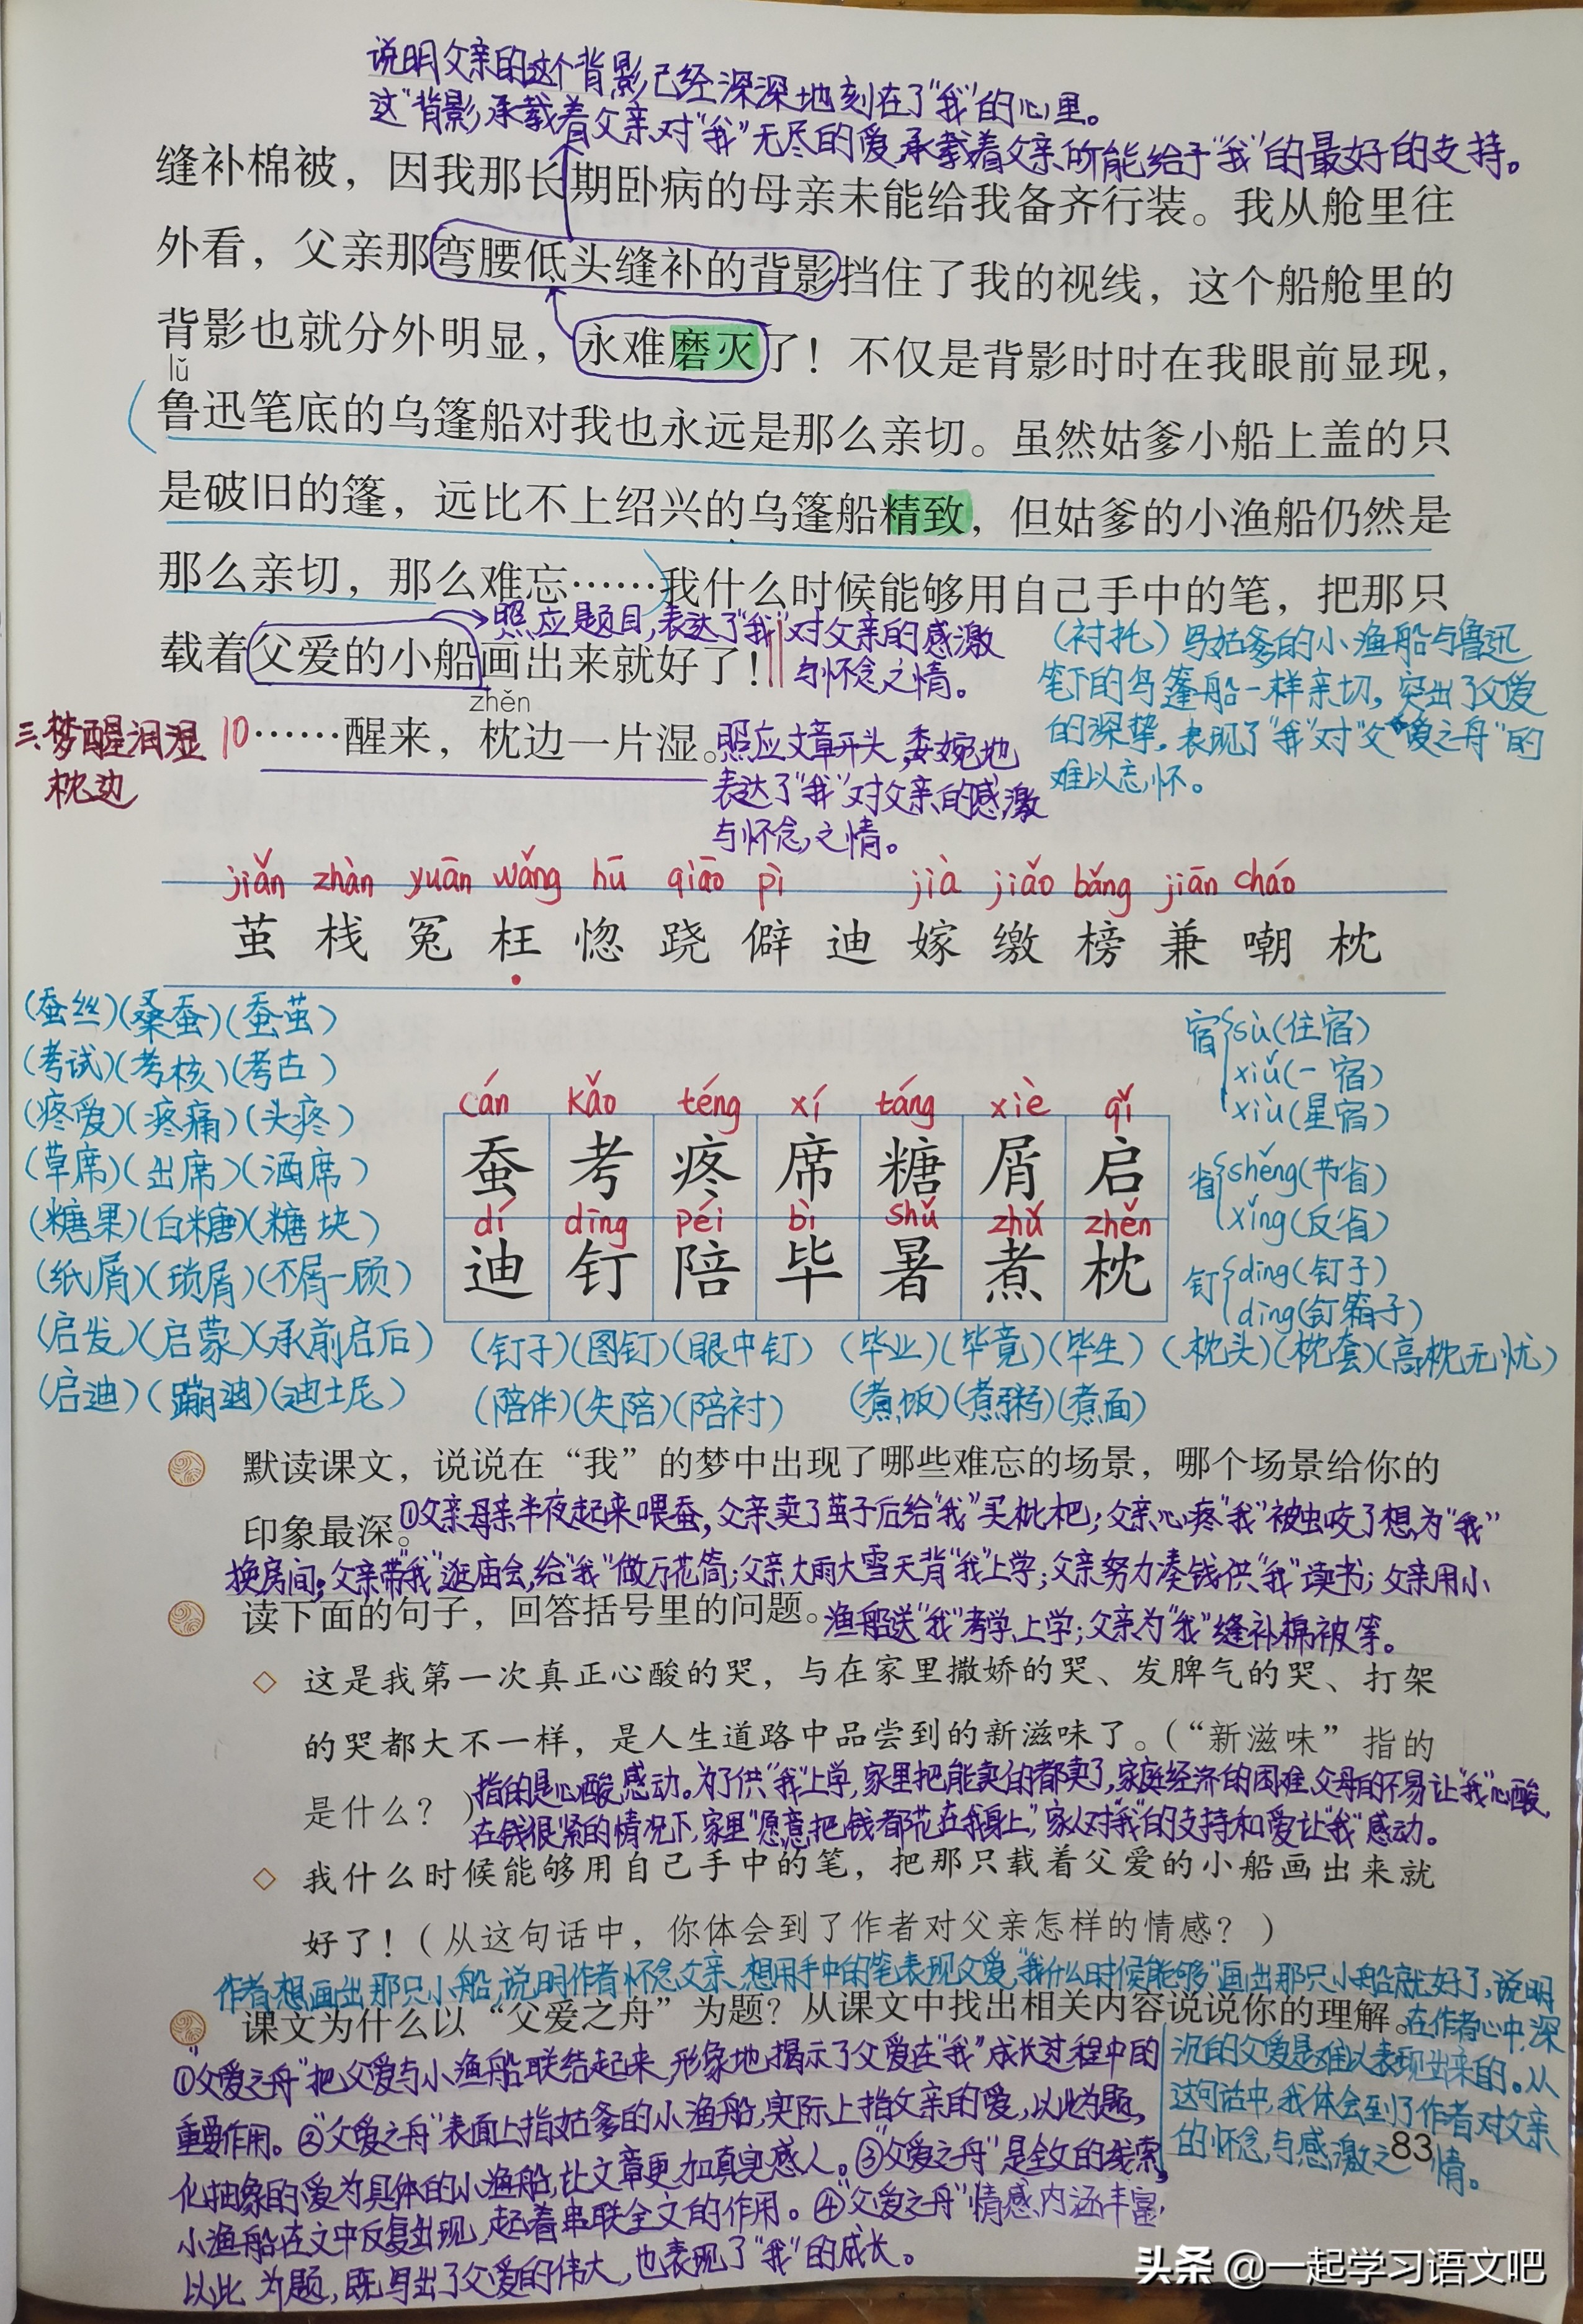 说明父亲的这个背影已经深深地刻在了"我"的心里。
这"背影"承载着父亲对"我"无尽的爱,承载着父亲所能给予"我"的最好的支持。
缝补棉被，因我那长期卧病的母亲未能给我备齐行装。我从舱里往
外看，父亲那弯腰低头缝补的背影挡住了我的视线，这个船舱里的
背影也就分外明显，永难磨灭了！不仅是背影时时在我眼前显现，
lǔ
鲁迅笔底的乌篷船对我也永远是那么亲切。虽然姑爹小船上盖的只
是破旧的篷，远比不上绍兴的乌篷船精致，但姑爹的小渔船仍然是
那么亲切，那么难忘……我什么时候能够用自己手中的笔，把那只
载着父爱的小船画出来就好了！
照应题目,表达了"我"对父亲的感激
与怀念之情。
(衬托)写姑爹的小渔船与鲁迅
笔下的乌篷船一样亲切,突出了父爱
的深挚,表现了"我"对"父爱之舟"的
难以忘怀。
zhěn
三、梦醒泪湿
枕边
10
……醒来，枕边一片湿。
照应文章开头,委婉地
表达了"我"对父亲的感激
与怀念之情。
jiǎn zhàn yuān wǎng hū qiāo pì jià jiǎo bǎng jiān cháo
茧 栈 冤 枉 惚 跷 僻 迪 嫁 缴 榜 兼 嘲 枕
(蚕丝)(桑蚕)(蚕茧)
(考试)(考核)(考古)
(疼爱)(疼痛)(头疼)
(草席)(出席)(酒席)
(糖果)(白糖)(糖块)
(纸屑)(琐屑)(不屑一顾)
(启发)(启蒙)(承前启后)
(启迪)(蹦迪)(迪士尼)
cán kǎo téng xí táng xiè qǐ
蚕 考 疼 席 糖 屑 启
dí dīng péi bì shǔ zhǔ zhěn
迪 钉 陪 毕 暑 煮 枕
宿 sù(住宿)
xiǔ(一宿)
xiù(星宿)
省 shěng(节省)
xǐng(反省)
钉 dīng(钉子)
dìng(钉箱子)
(钉子)(图钉)(眼中钉) (毕业)(毕竟)(毕生) (枕头)(枕套)(高枕无忧)
(陪伴)(失陪)(陪衬) (煮饭)(煮粥)(煮面)
默读课文，说说在“我”的梦中出现了哪些难忘的场景，哪个场景给你的
印象最深。
①父亲母亲半夜起来喂蚕,父亲卖了茧子后给"我"买枇杷;父亲心疼"我"被虫咬了想为"我"
换房间;父亲带"我"逛庙会,给"我"做万花筒;父亲大雨大雪天背"我"上学;父亲努力凑钱供"我"读书;父亲用小
渔船送"我"考学、上学;父亲为"我"缝补棉被等。
读下面的句子，回答括号里的问题。
◇ 这是我第一次真正心酸的哭，与在家里撒娇的哭、发脾气的哭、打架
的哭都大不一样，是人生道路中品尝到的新滋味了。（“新滋味”指的
是什么？）
指的是心酸、感动。为了供"我"上学,家里把能卖的都卖了,家庭经济的困难,父母的不易让"我"心酸,
在钱很"紧"的情况下,家里"愿意把钱都花在我身上",家人对"我"的支持和爱让"我"感动。
◇ 我什么时候能够用自己手中的笔，把那只载着父爱的小船画出来就
好了！（从这句话中，你体会到了作者对父亲怎样的情感？）
作者想画出那只小船,说明作者怀念父亲,想用手中的笔表现父爱,"我什么时候能够"画出那只小船就好了,说明
课文为什么以“父爱之舟”为题？从课文中找出相关内容说说你的理解。
在作者心中,深
沉的父爱是难以表现出来的。从
这句话中,我体会到了作者对父亲
的怀念与感激之情。
①"父爱之舟"把父爱与小渔船联结起来,形象地揭示了父爱在"我"成长过程中的
重要作用。②"父爱之舟"表面上指姑爹的小渔船,实际上指父亲的爱,以此为题,
化抽象的爱为具体的小渔船,让文章更加真实感人。③"父爱之舟"是全文的线索,
小渔船在文中反复出现,起着串联全文的作用。④"父爱之舟"情感内涵丰富,
以此为题,既写出了父爱的伟大,也表现了"我"的成长。
83
头条 @一起学习语文吧